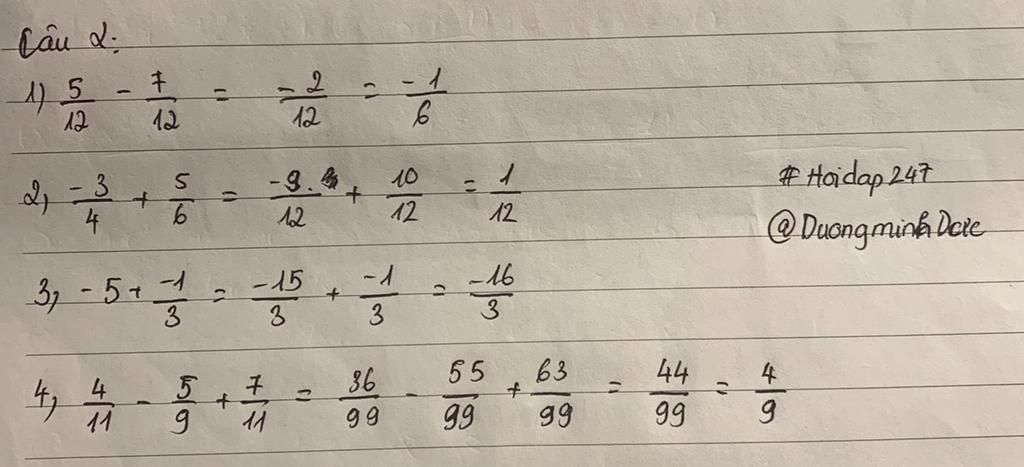 Câu 2:
1) 5/12 - 7/12 = -2/12 = -1/6
2, -3/4 + 5/6 = -9./12 + 10/12 = 1/12
# Hoidap247
@DuongminhDưc
3, -5 + -1/3 = -15/3 + -1/3 = -16/3
4, 4/11 - 5/9 + 7/11 = 36/99 - 55/99 + 63/99 = 44/99 = 4/9